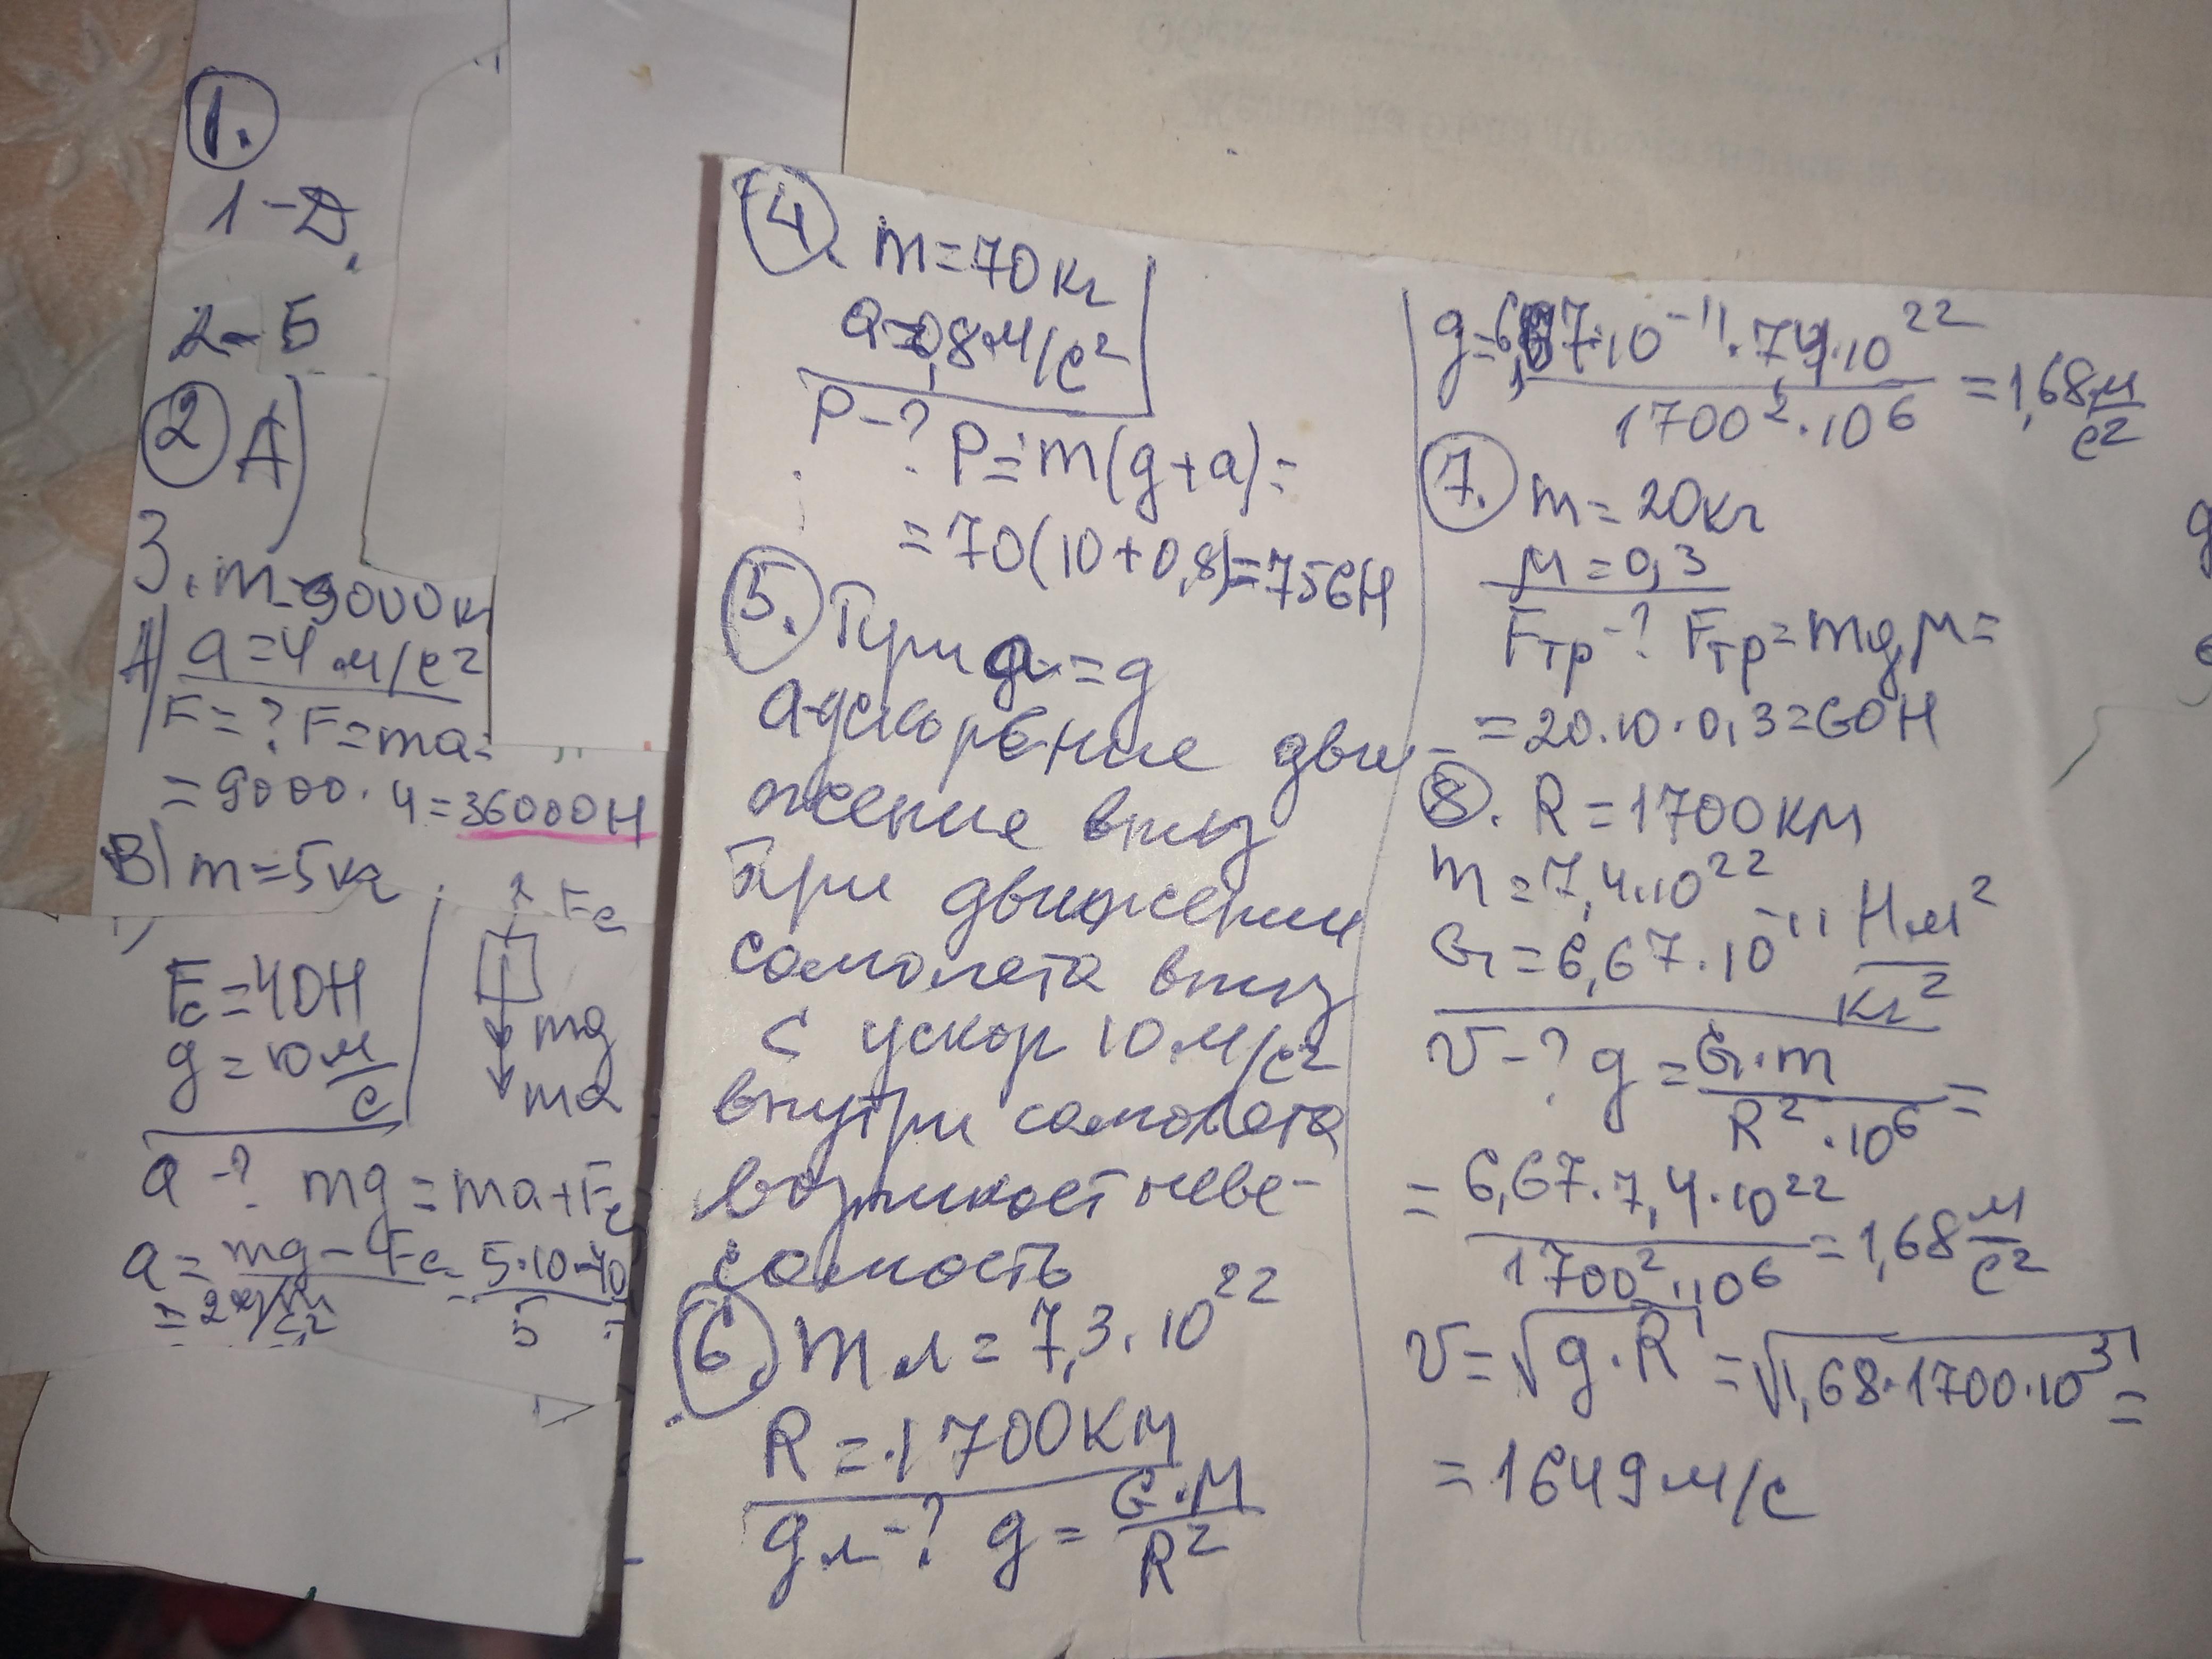 1.
1-Д
2-Б
2 А)
3. m=9000к
А) a=4 м/с²
F=? F=ma=
=9000·4=36000Н
В) m=5кг
Fс=40Н
g=10 м/с
Fс
mg
ma
a-? mg=ma+Fс
a= (mg-Fс)/ = (5·10-40)/5 =
4. m=70кг
a=0,8м/с²
P-? P=m(g+a)=
=70(10+0,8)=756Н
5. При a=g
а-ускорение дви-
жение вниз
При движении
самолета вниз
с ускор 10м/с²
внутри самолета
возникает неве-
сомость
6. mл=7,3·10²²
R=1700км
gл-? g= G·M/R²
g= 6,67·10⁻¹¹·7,4·10²² / 1700²·10⁶ =1,68 м/с²
7. m=20кг
μ=0,3
Fтр-? Fтр=mgμ=
=20·10·0,3=60Н
8. R=1700км
m=7,4·10²²
G=6,67·10⁻¹¹ Нм²/кг²
v-? g= G·m / R²·10⁶ =
= 6,67·7,4·10²² / 1700²·10⁶ =1,68 м/с²
v=√g·R =√1,68·1700·10³ =
=1649м/с